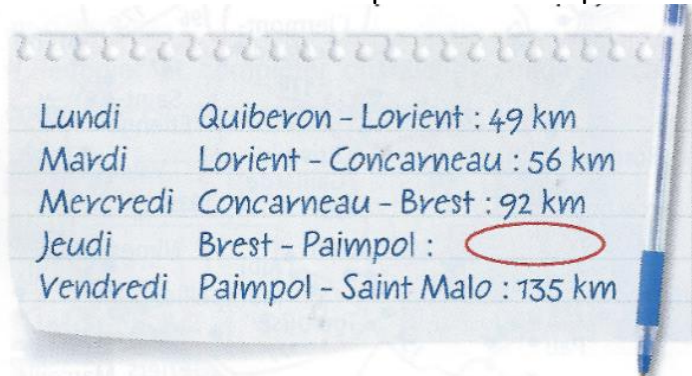 Lundi Quiberon – Lorient : 49 km
Mardi Lorient – Concarneau : 56 km
Mercredi Concarneau – Brest : 92 km
Jeudi Brest – Paimpol :
Vendredi Paimpol – Saint Malo : 135 km